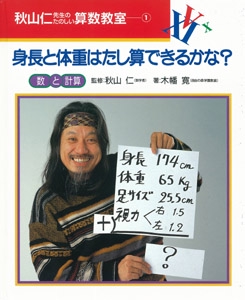 秋山仁先生のたのしい算数教室—①
身長と体重はたし算できるかな?
数と計算
監修 秋山 仁 著 木幡 寛
身長 174cm
体重 65Kg
足サイズ 25.5cm
視力 右 1.5
左 1.2
+
?